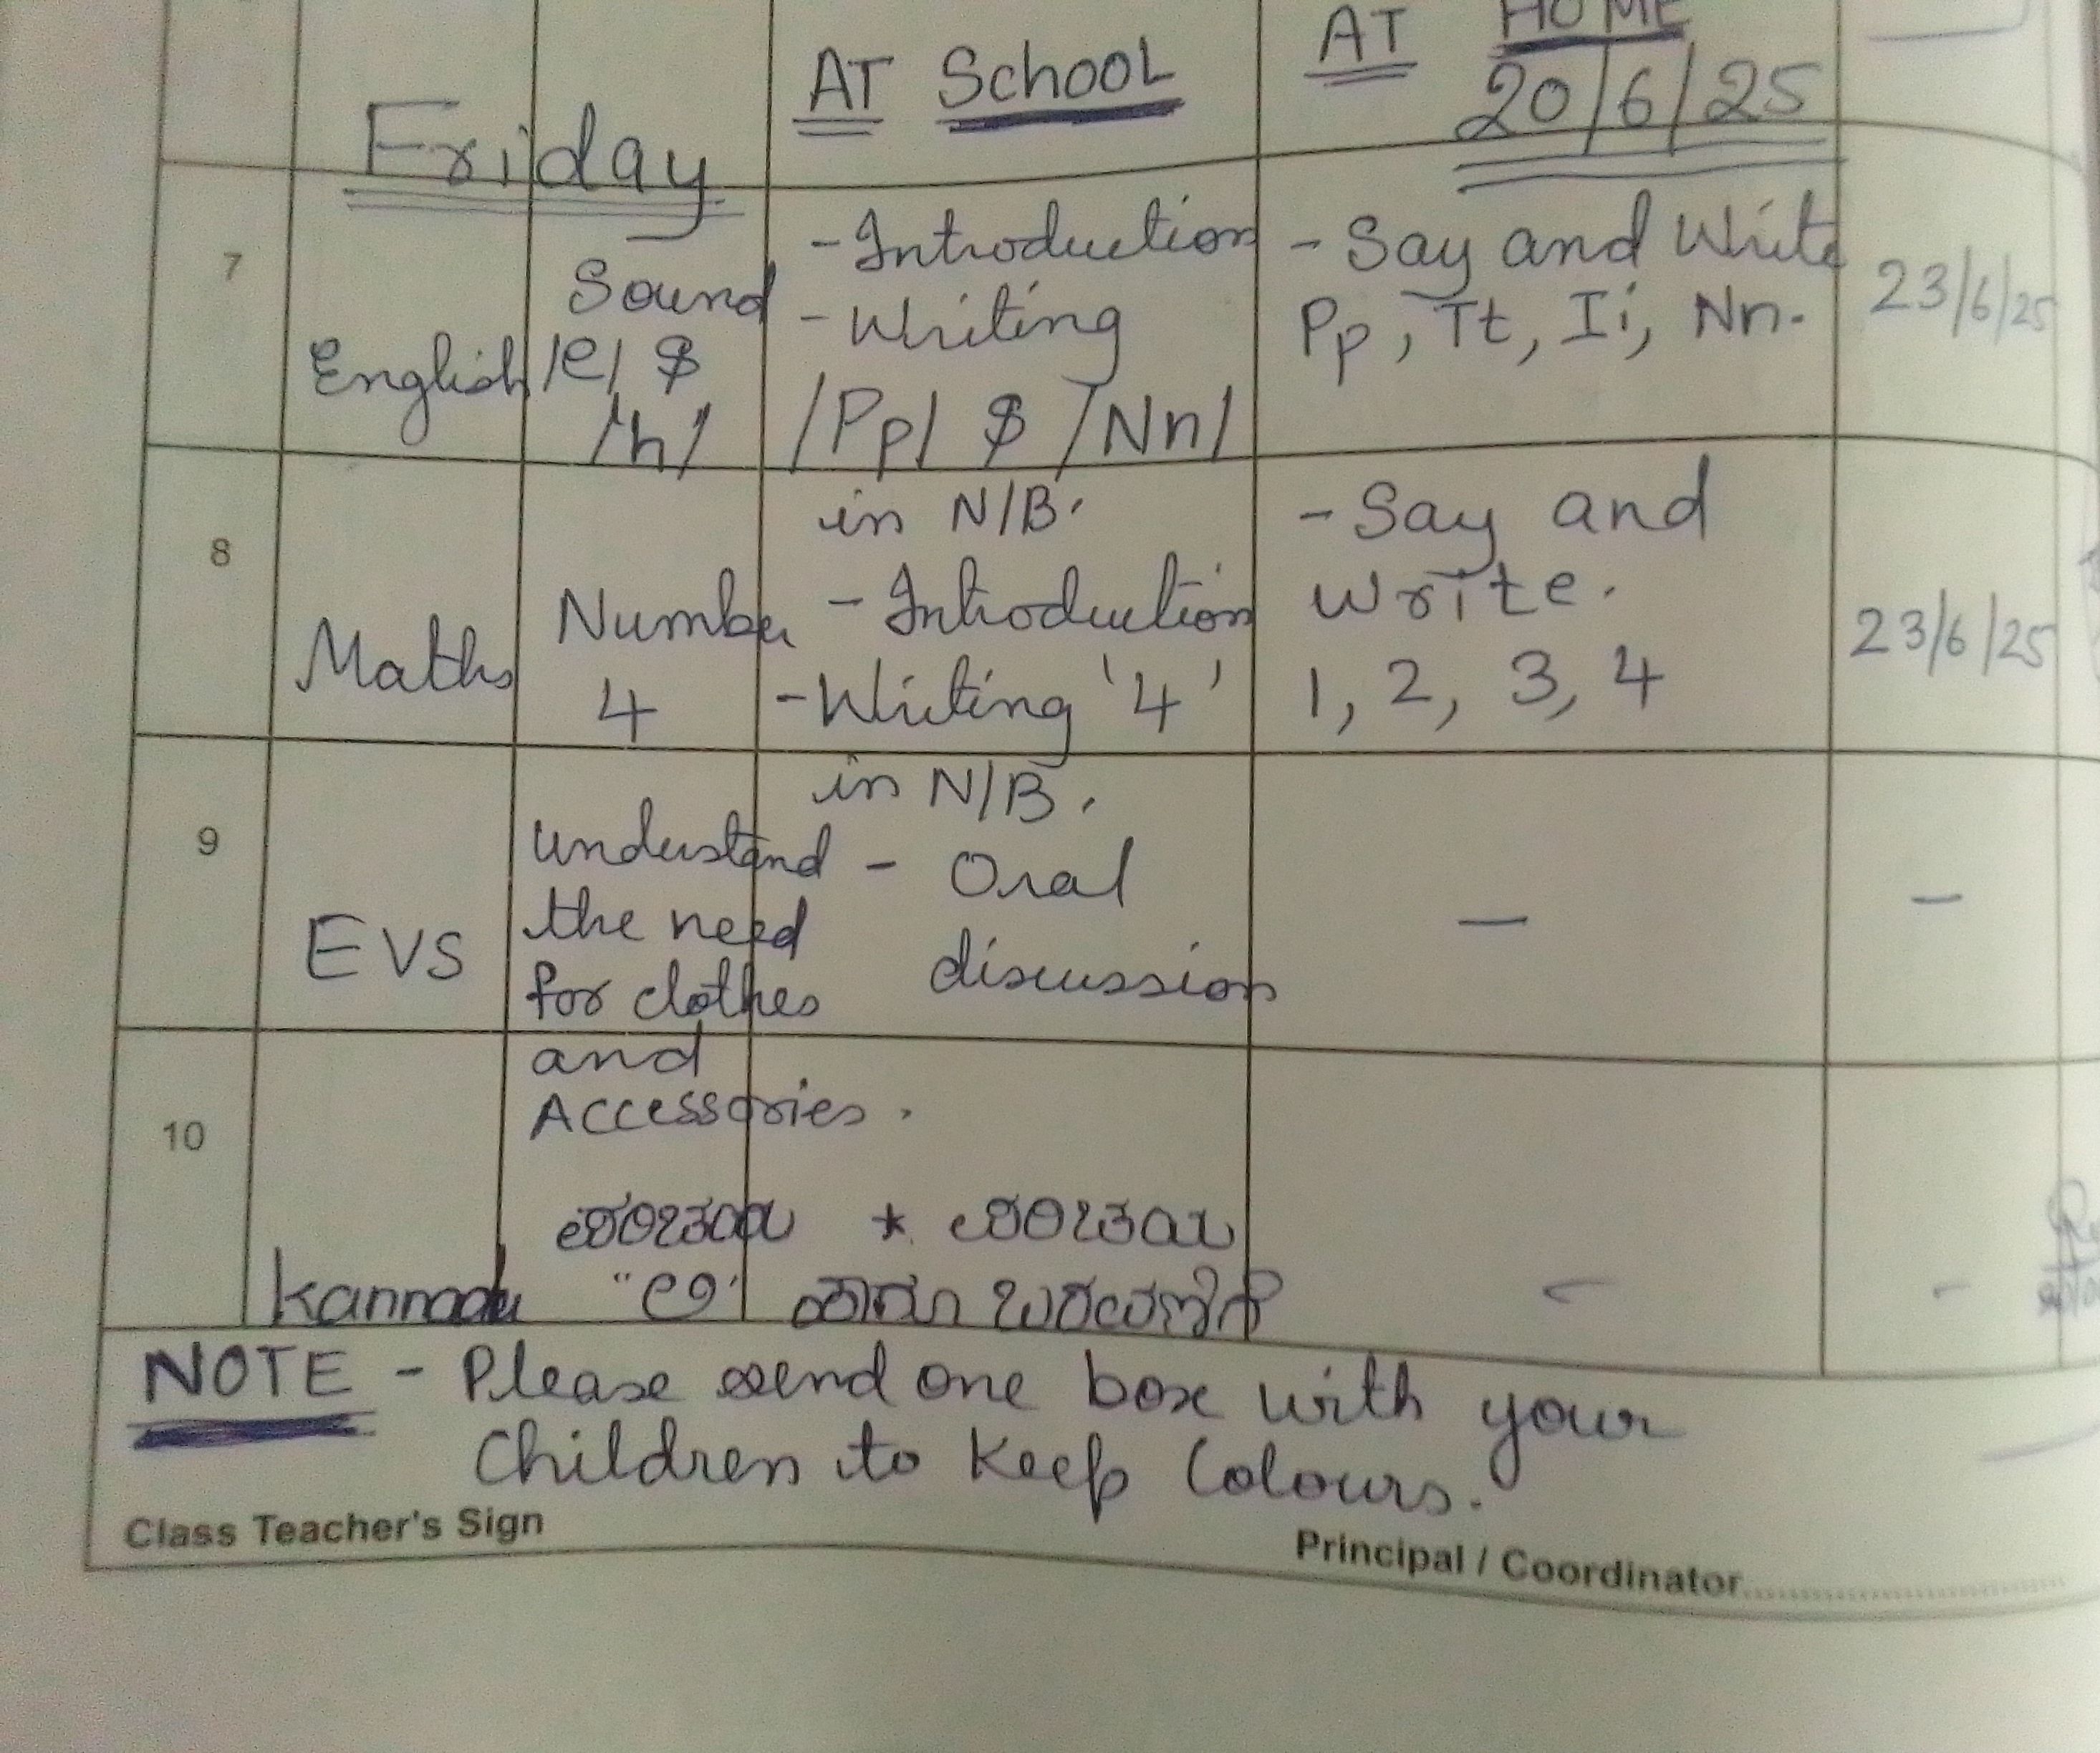 AT School
AT HOME
Friday
20/6/25
7
English
Sound
/e/ $
/h/
- Introduction
- Writing
/Pp/ $ /Nn/
in N/B.
- Say and Write
Pp, Tt, Ii, Nn.
23/6/25
8
Maths
Number
4
- Introduction
- Writing '4'
in N/B.
- Say and
Write.
1, 2, 3, 4
23/6/25
9
EVS
understand
the need
for clothes
and
Accessories.
- Oral
discussion
—
—
10
Kannada
ಪರಿಚಯ
"ಅ"
* ಪರಿಚಯ
ಹಾಗೂ ಬರವಣಿಗೆ
-
-
NOTE - Please send one box with your
Children to keep Colours.
Class Teacher's Sign
Principal / Coordinator..............................